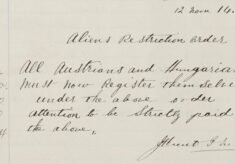 12 Nov 14
Aliens Restriction order
All Austrians and Hungaria
Must now Register themselve
under the above order
attention to be strictly paid
the above.